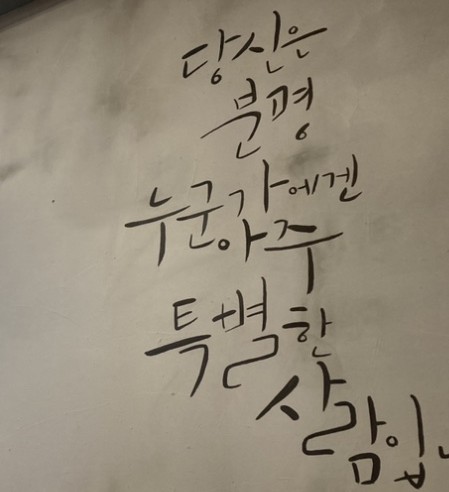 당신은
분명
누군가에겐
아주
특별한
사람입